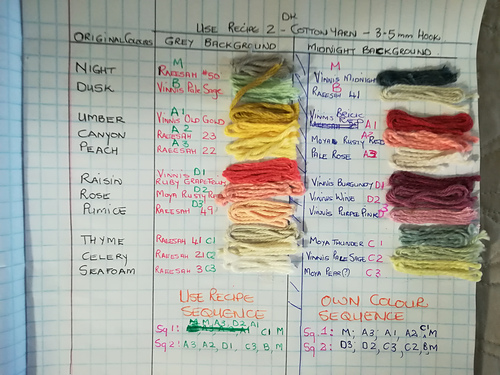 DK
USE RECIPE 2 - COTTON YARN - 3-5mm HOOK
ORIGINAL COLOURS GREY BACKGROUND MIDNIGHT BACKGROUND
M M
NIGHT RAEESAH #50 VINNIS MIDNIGHT
B B
DUSK VINNIS Pale Sage RAEESAH 41
A1
UMBER VINNIS OLD GOLD VINNIS BRICK A1
A2 A2
CANYON RAEESAH 23 MOYA RUSTY RED
A3
PEACH RAEESAH 22 PALE ROSE A3
RAISIN VINNIS D1 VINNIS BURGUNDY D1
RUBY
ROSE MOYA RUSTY D2 VINNIS WINE D2
D3
PUMICE RAEESAH 49 VINNIS PURPLE PINK D3
THYME RAEESAH 41 C1 MOYA THUNDER C1
CELERY RAEESAH 21 C2 VINNIS PALE SAGE C2
SEAFOAM RAEESAH 3 C3 MOYA PEAR (?) C3
USE RECIPE OWN COLOUR
SEQUENCE SEQUENCE
Sq 1: M, A3, D2, A1 C1 M Sq. 1: M, A3, A1, A2, C1, M
Sq 2: A3, A2, D1, C3, B, M Sq. 2: D3, D2, C3, C2, B, M